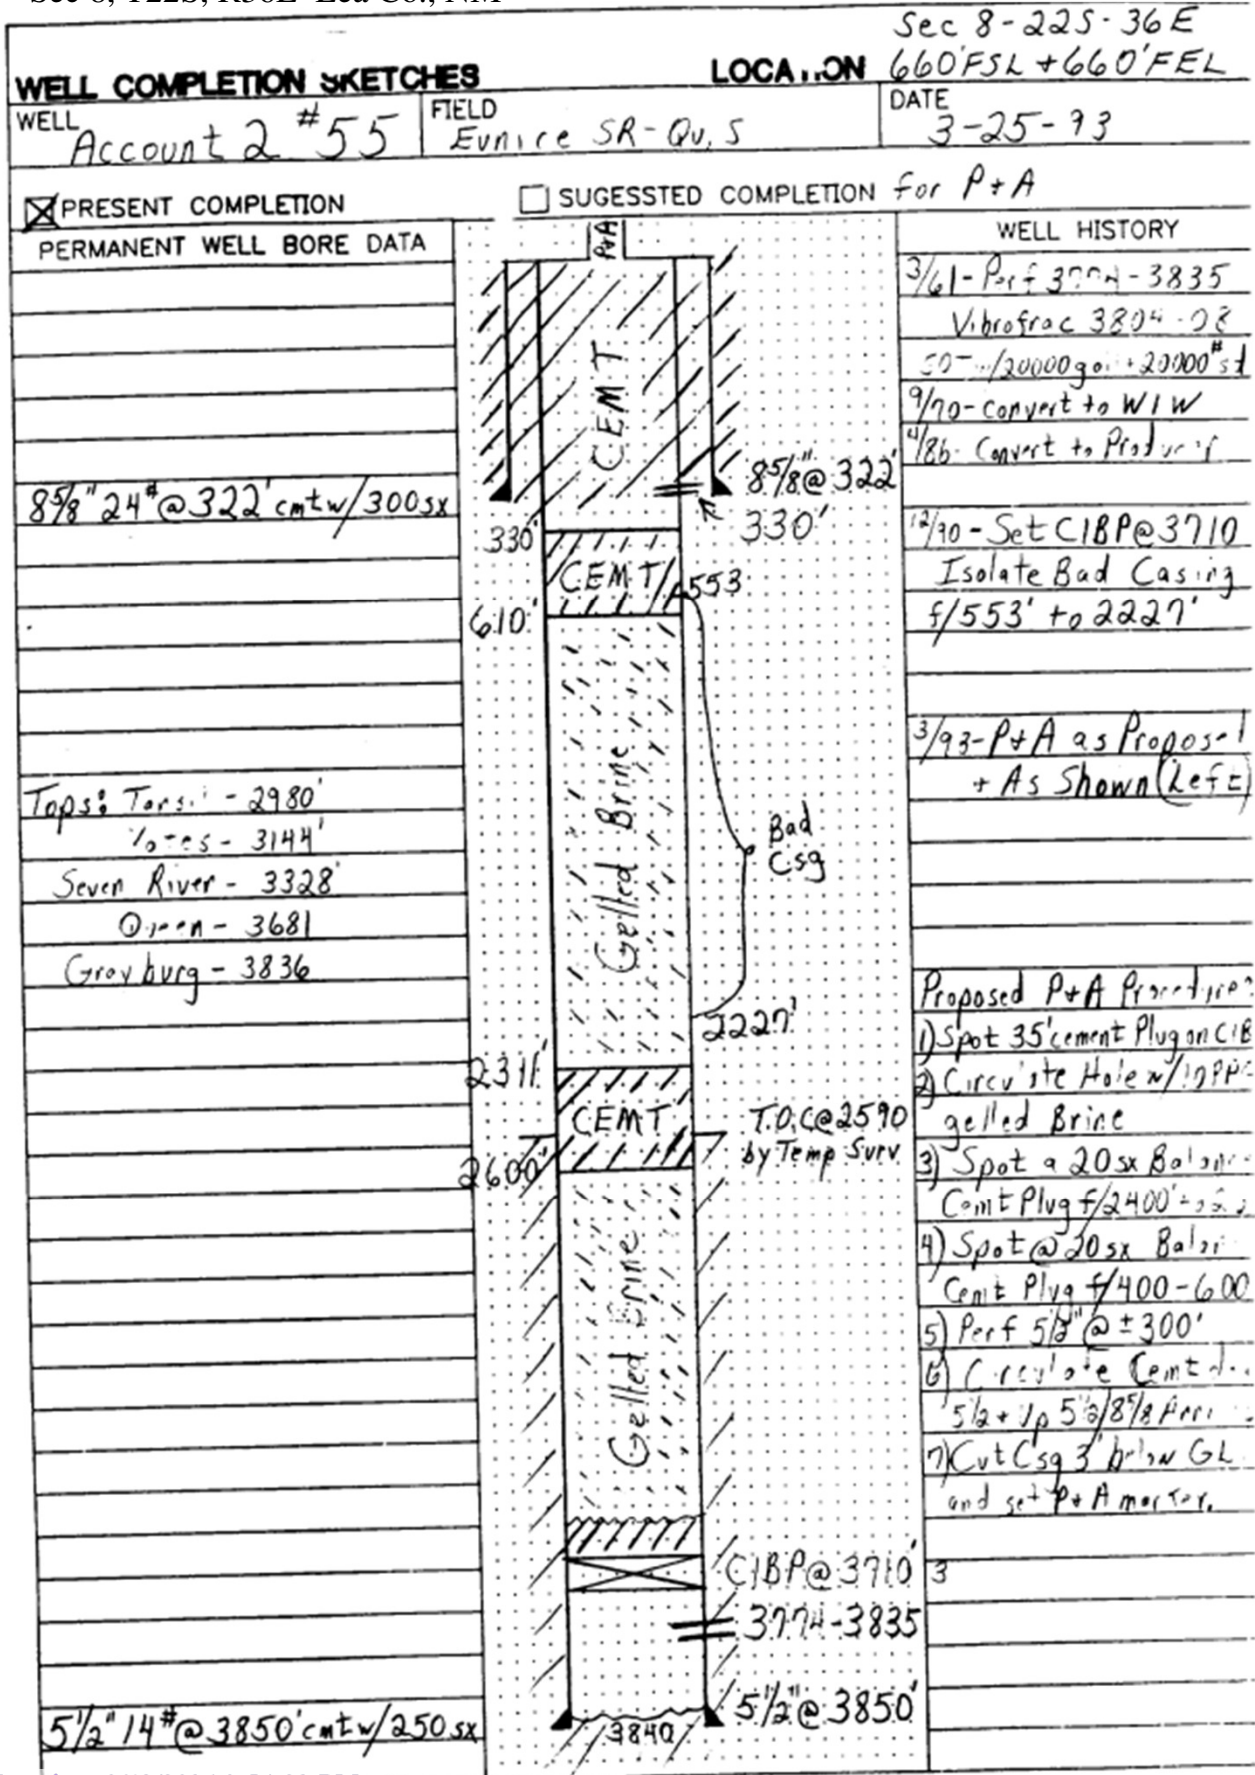 Sec 8-22S-36E
WELL COMPLETION SKETCHES
LOCATION 660'FSL + 660'FEL
WELL Account 2 #55
FIELD Eunice SR-Qu, S
DATE 3-25-93
PRESENT COMPLETION
SUGESSTED COMPLETION for P+A
PERMANENT WELL BORE DATA
8 5/8" 24# @ 322' cmt w/300sx
Tops: - 2980'
- 3144'
Seven River - 3328'
Queen - 3681
Grayburg - 3836
5 1/2" 14# @ 3850' cmt w/250 sx
P+A
CEMT
8 5/8" @ 322'
330'
330'
CEMT
553
610'
Gelled Brine
Bad
Csg
2227'
2311'
CEMT
T.O.C @ 2590
by Temp Surv
2600'
Gelled Brine
CIBP @ 3710'
3774-3835
5 1/2" @ 3850'
3840
WELL HISTORY
3/61 - Perf - 3835
Vibrofrac
20000 + 20000#
9/70 - Convert to WIW
4/86 - Convert to Producer
12/90 - Set CIBP @ 3710
Isolate Bad Casing
f/553' to 2227'
3/93 - P+A as
+ As Shown (Left)
Proposed P+A Procedure
1) Spot 35' cement Plug on CIB
2) Circulate Hole w/
gelled Brine
3) Spot a 20 sx
Cemt Plug f/2400'
4) Spot @ 20 sx
Cemt Plug f/400-600
5) Perf 5 1/2" @ ± 300'
6) Circulate Cemt
5 1/2 + Up 5 1/2/8 5/8
7) Cut Csg 3' below GL
and set P+A marker.
3